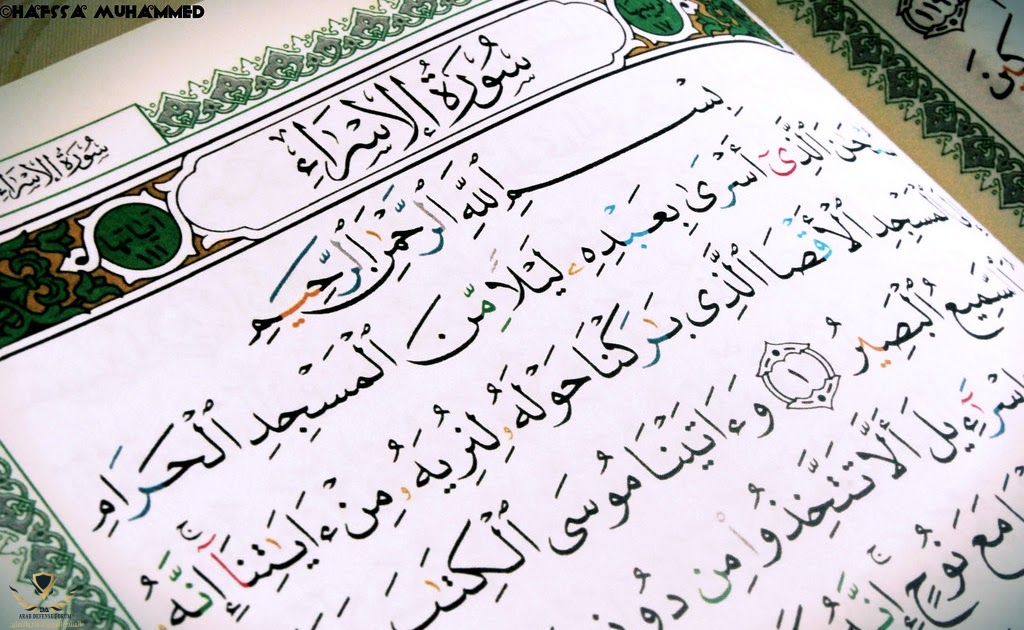 ©HAFSSA MUHAMMED
سُورَةُ الإِسْرَاءِ
سُورَةُ الإِسْرَاءِ
آيَاتُهَا ١١١
بِسْمِ ٱللَّهِ ٱلرَّحْمَٰنِ ٱلرَّحِيمِ
ٱلَّذِىٓ أَسْرَىٰ بِعَبْدِهِۦ لَيْلًا مِّنَ ٱلْمَسْجِدِ ٱلْحَرَامِ
ٱلْمَسْجِدِ ٱلْأَقْصَا ٱلَّذِى بَٰرَكْنَا حَوْلَهُۥ لِنُرِيَهُۥ مِنْ ءَايَٰتِنَآ إِنَّهُۥ
ٱلسَّمِيعُ ٱلْبَصِيرُ ١ وَءَاتَيْنَا مُوسَى ٱلْكِتَٰبَ
إِسْرَٰٓءِيلَ أَلَّا تَتَّخِذُوا۟ مِن دُونِى
مَعَ نُوحٍ إِنَّهُۥ
ARAB DEFENSE FORUM